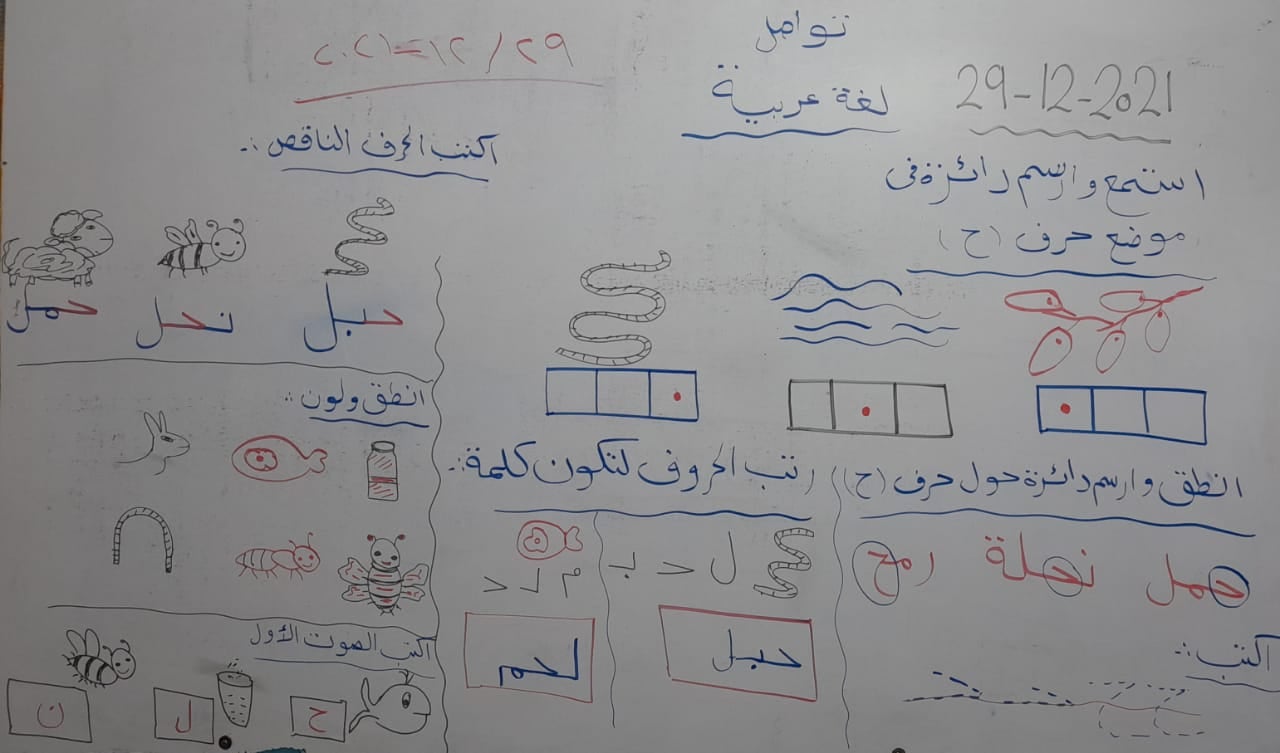 تواصل
لغة عربية
29-12-2021
٢٠٢١=١٢/٢٩
استمع وارسم دائرة فى
موضع حرف (ح)
انطق وارسم دائرة حول حرف (ح)
حمل
نحلة
رمح
اكتب:-
رتب الحروف لتكون كلمة:-
ل ح ب
حبل
م ل ح
لحم
اكتب الحرف الناقص:-
حبل
نحل
حمل
انطق ولون:
اكتب الصوت الأول
ح
ل
ن